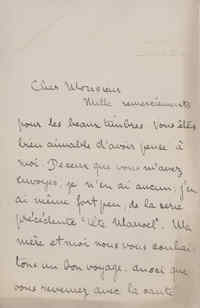 Cher Monsieur
Mille remerciements
pour les beaux timbres. Vous êtes
bien aimable d'avoir pensé à
moi. De ceux que vous m'avez
envoyés, je n'en ai aucun; j'en
ai même fort peu, de la série
précédente "tête Manoel". Ma
mère et moi nous vous souhai-
tons un bon voyage, aussi que
vous reveniez avec la santé